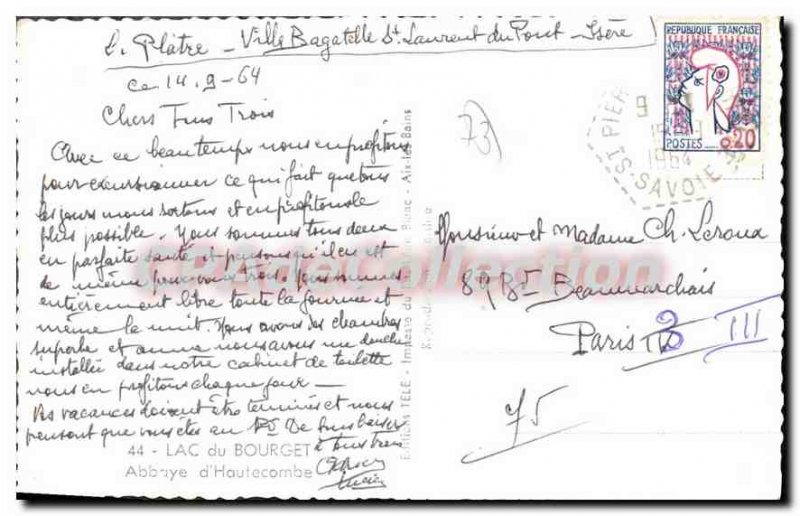 Le Plâtre - Ville Bagatelle St Laurent du Pont - Isère
Ce 14.9-64
Chers Tous Trois
Avec ce beau temps nous en profitons
pour excursionner ce qui fait que tous
les jours nous sortons et en profitons le
plus possible. Nous sommes tous deux
en parfaite santé et pensons qu'il en est
de même pour vous trois. Nous sommes
entièrement libre toute la journée et
même la nuit. Nous avons des chambres
superbe et nous avons une douche
installée dans notre cabinet de toilette
nous en profitons chaque jour -
Vos vacances doivent être terminés et nous
pensons que vous êtes au De bons baisers
à tous trois
Lucien
44 - LAC du BOURGET
Abbaye d'Hautecombe
Editions TELE - Blanc - Aix-les-Bains
73
REPUBLIQUE FRANÇAISE
POSTES 0,20
1964
SAVOIE
CPA de Collection
Monsieur et Madame Ch. Leroux
89 BD Beaumarchais
Paris 3 III
75